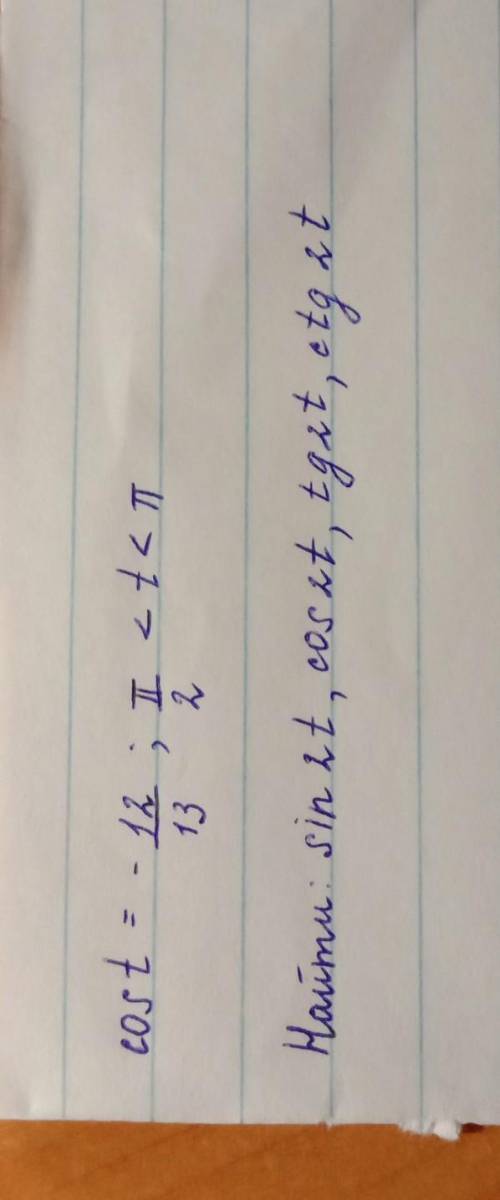 cos t = - 12/13 ; π/2 < t < π
Найти: sin 2t, cos 2t, tg 2t, ctg 2t